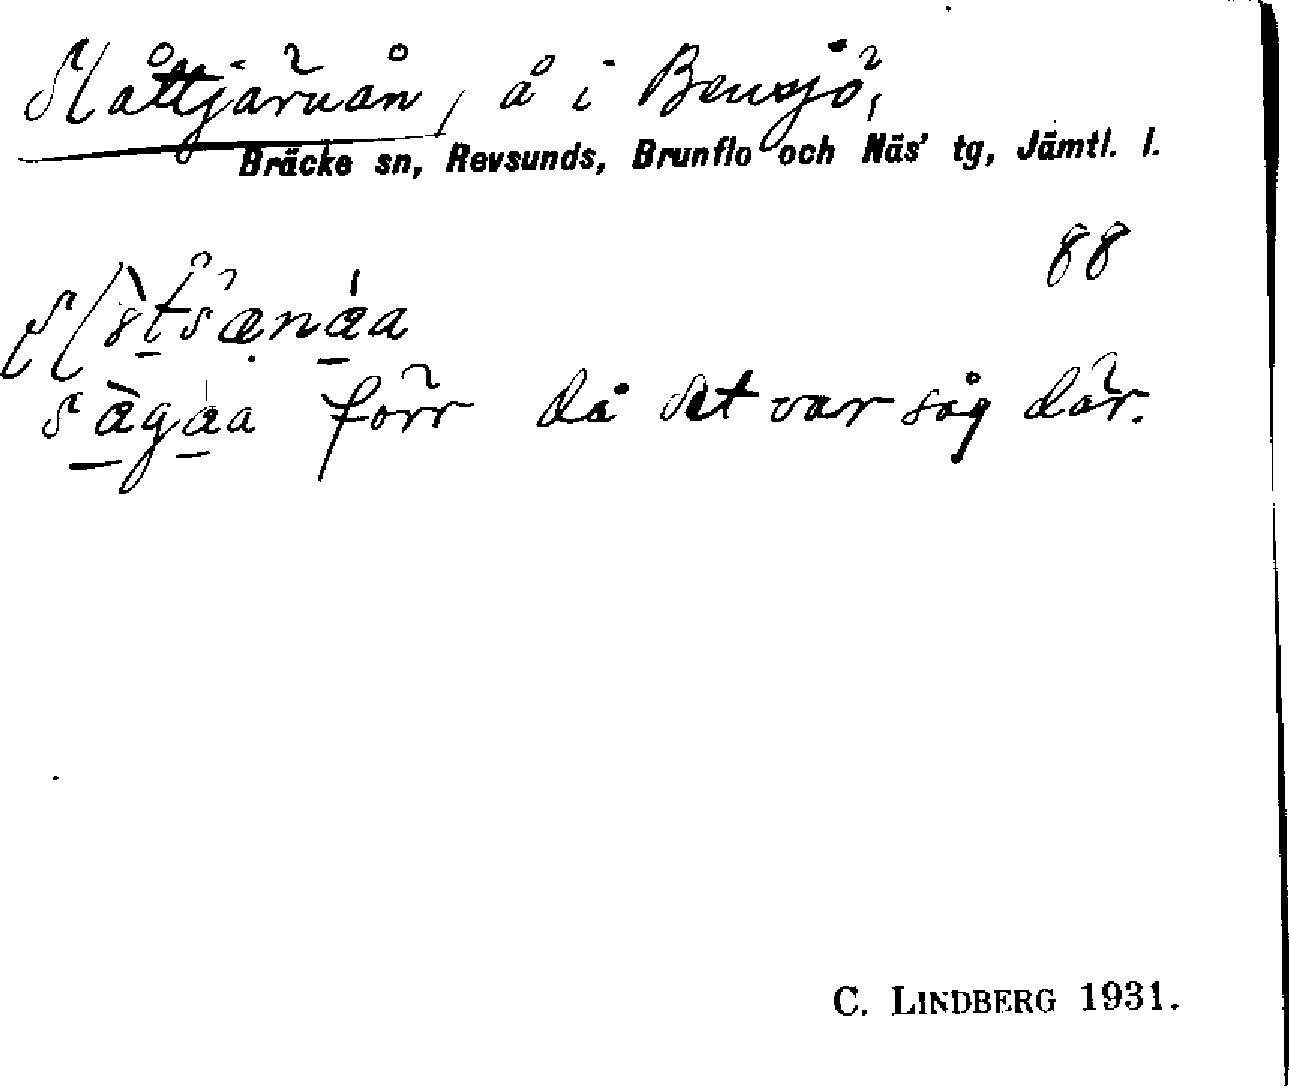 Slåttjärnån, å i Bensjö,
Bräcke sn, Revsunds, Brunflo och Näs' tg, Jämtl. l.
88
sàgáa förr då det var såg där.
C. LINDBERG 1931.